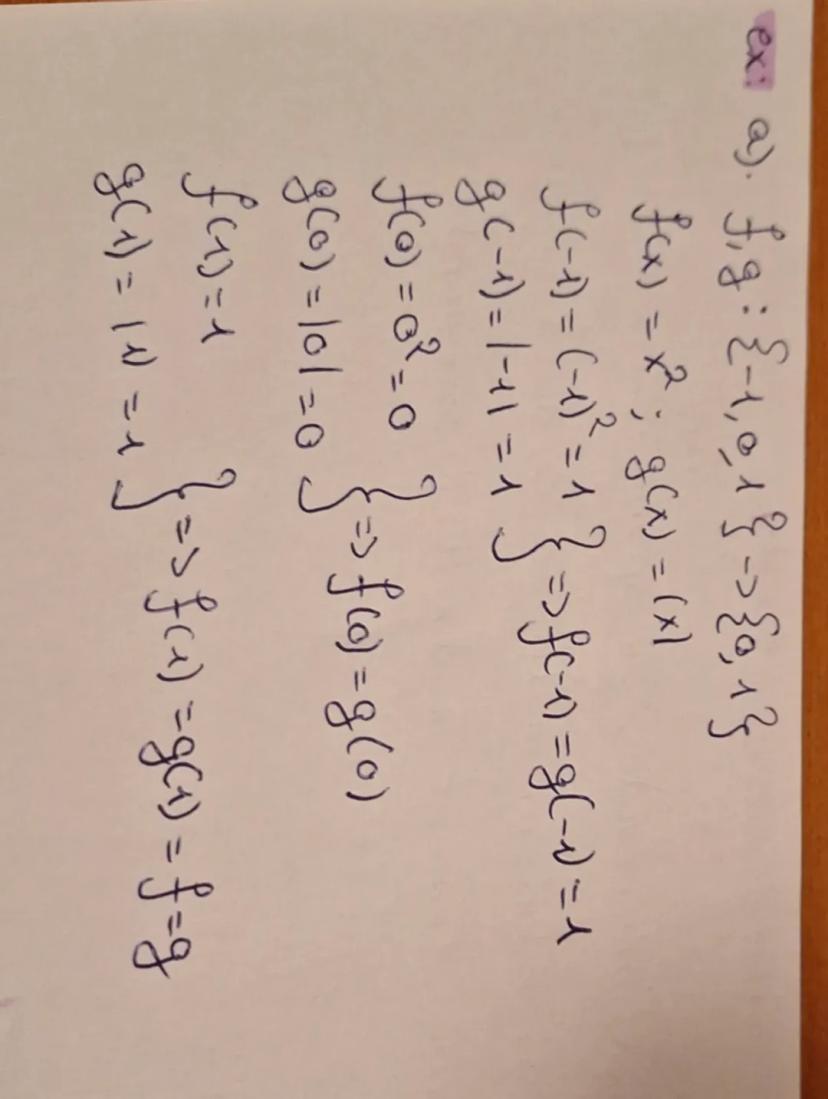 ex: a). f,g: {-1,0,1} -> {0,1}
f(x) = x²; g(x) = |x|
f(-1) = (-1)² = 1
g(-1) = |-1| = 1 } => f(-1) = g(-1) = 1
f(0) = 0² = 0
g(0) = |0| = 0 } => f(0) = g(0)
f(1) = 1
g(1) = |1| = 1 } => f(1) = g(1) = f = g